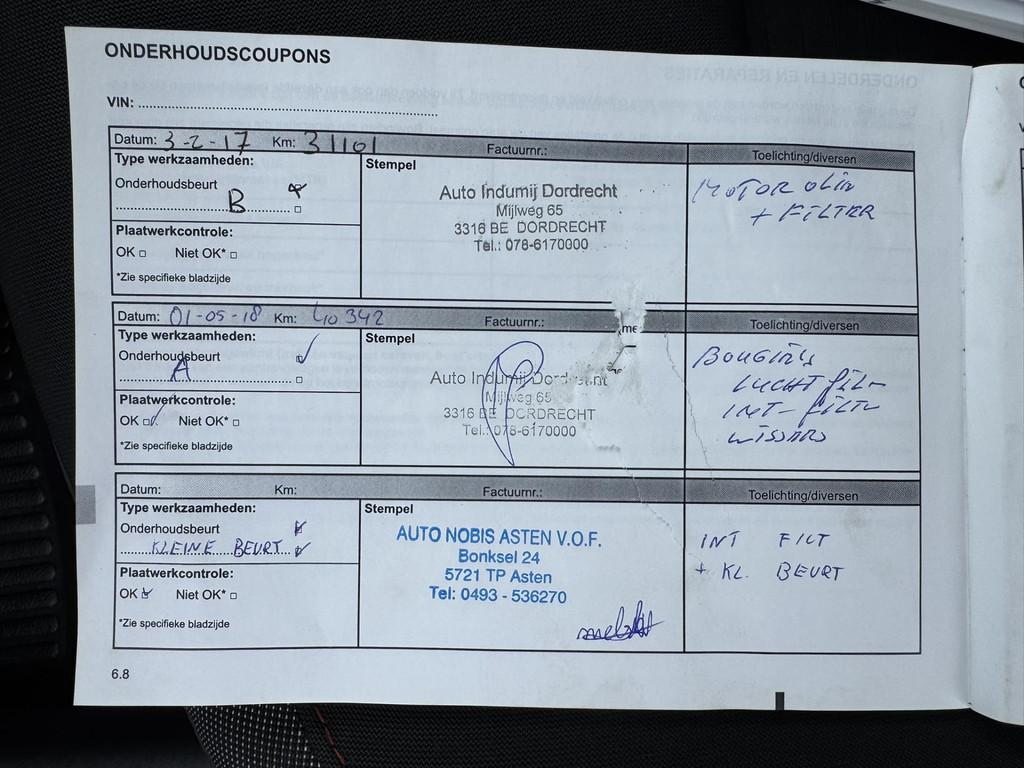 ONDERHOUDSCOUPONS
VIN:
Datum: 3-2-17 Km: 31101 Factuurnr.: Toelichting/diversen
Type werkzaamheden:
Onderhoudsbeurt
B
Plaatwerkcontrole:
OK Niet OK*
*Zie specifieke bladzijde
Stempel
Auto Indumij Dordrecht
Mijlweg 65
3316 BE DORDRECHT
Tel.: 078-6170000
MOTOR OLIE
+ FILTER
Datum: 01-05-18 Km: 40342 Factuurnr.: Toelichting/diversen
Type werkzaamheden:
Onderhoudsbeurt
A
Plaatwerkcontrole:
OK Niet OK*
*Zie specifieke bladzijde
Stempel
Auto Indumij Dordrecht
Mijlweg 65
3316 BE DORDRECHT
Tel.: 078-6170000
me
BOUGIES
LUCHT FILT
INT-FILTER
WISSERS
Datum: Km: Factuurnr.: Toelichting/diversen
Type werkzaamheden:
Onderhoudsbeurt
KLEINE BEURT
Plaatwerkcontrole:
OK Niet OK*
*Zie specifieke bladzijde
Stempel
AUTO NOBIS ASTEN V.O.F.
Bonksel 24
5721 TP Asten
Tel: 0493 - 536270
INT FILT
+ KL. BEURT
6.8